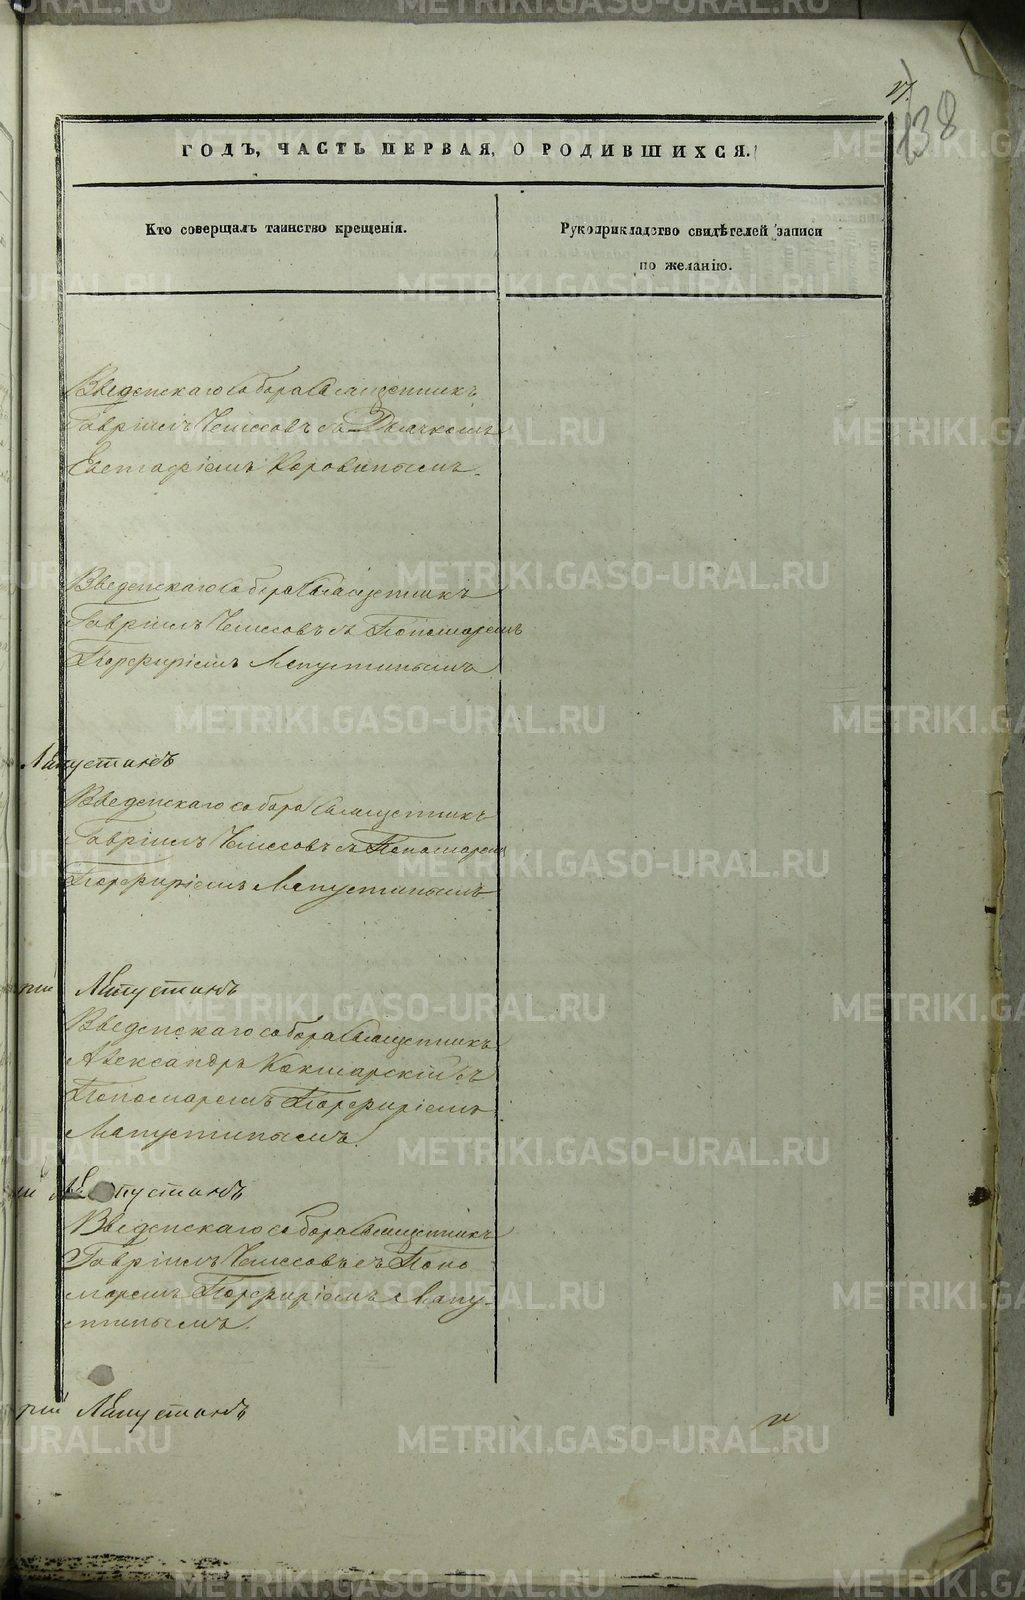 138
ГОДЪ, ЧАСТЬ ПЕРВАЯ, О РОДИВШИХСЯ.
Кто совершалъ таинство крещенія.
Рукоприкладство свидѣтелей записи
по желанію.
Введенскаго собора Священникъ
Гавріилъ Чемесовъ съ Дьячкомъ
Евстафіемъ Коровинымъ.
Введенскаго собора Священникъ
Гавріилъ Чемесовъ съ Пономаремъ
Порфиріемъ Лапустинымъ
Лапустинъ
Введенскаго собора Священникъ
Гавріилъ Чемесовъ съ Пономаремъ
Порфиріемъ Лапустинымъ
рій Лапустинъ
Введенскаго собора Священникъ
Александръ Кокшарскій съ
Пономаремъ Порфиріемъ
Лапустинымъ.
Лапустинъ
Введенскаго собора Священникъ
Гавріилъ Чемесовъ съ Поно
маремъ Порфиріемъ Лапу-
стинымъ.
рій Лапустинъ
METRIKI.GASO-URAL.RU